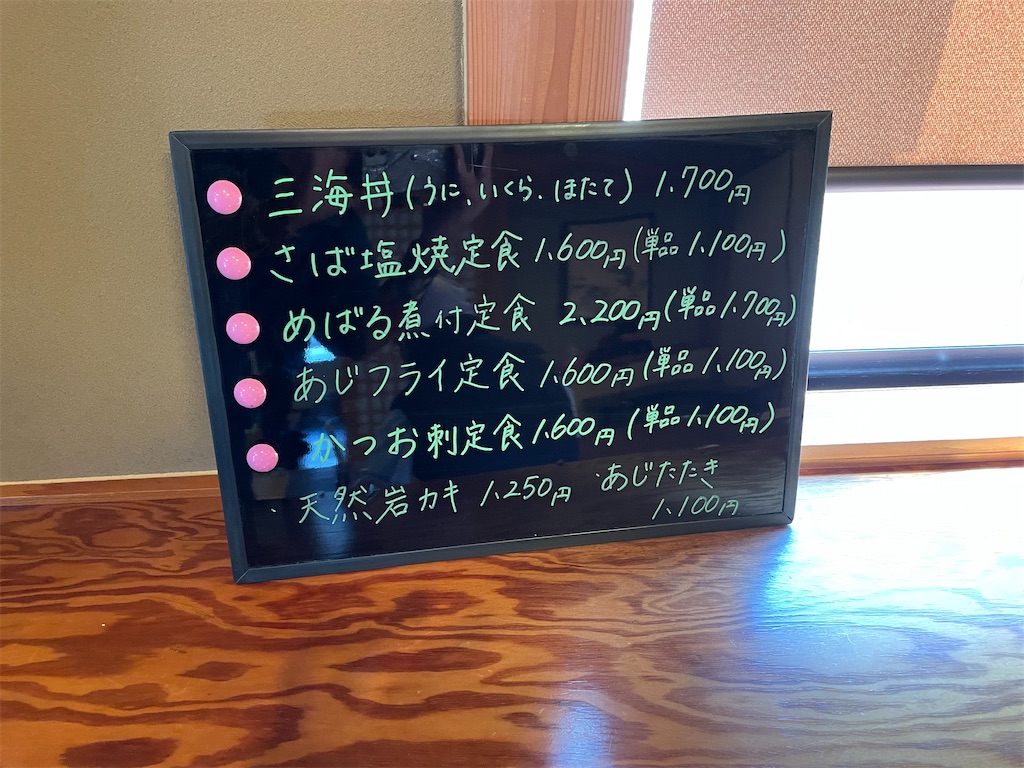 三海丼(うに、いくら、ほたて) 1.700円
さば塩焼定食 1.600円(単品 1.100円)
めばる煮付定食 2.200円(単品 1.700円)
あじフライ定食 1.600円(単品 1.100円)
かつお刺定食 1.600円(単品 1.100円)
・天然岩カキ 1.250円 ・あじたたき
1.100円